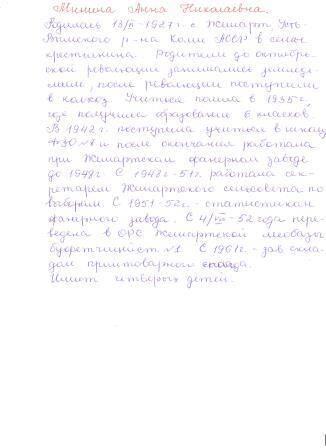 Минина Анна Николаевна.
Родилась 13/II-1927 г. с Жешарт Усть-
Вымского р-на Коми АССР в семье
крестьянина. Родители до октябрь-
ской революции занимались земледе-
лием, после революции поступили
в колхоз. Учиться пошла в 1935 г.
где получила образование 6 классов.
В 1942 г. поступила учиться в школу
ФЗО и после окончания работала
при Жешартском фанерном заводе
до 1948 г. С 1948 г-51 г. работала сек-
ретарем Жешартского сельсовета по
выборам. С 1951-52 г. - статистиком
фанерного завода. С 4/ -52 года пере-
ведена в ОРС Жешартской лесобазы
буфетчицей №1. С 1961 г. - зав. скла-
дом приштоварного склада.
Имеет четверых детей.